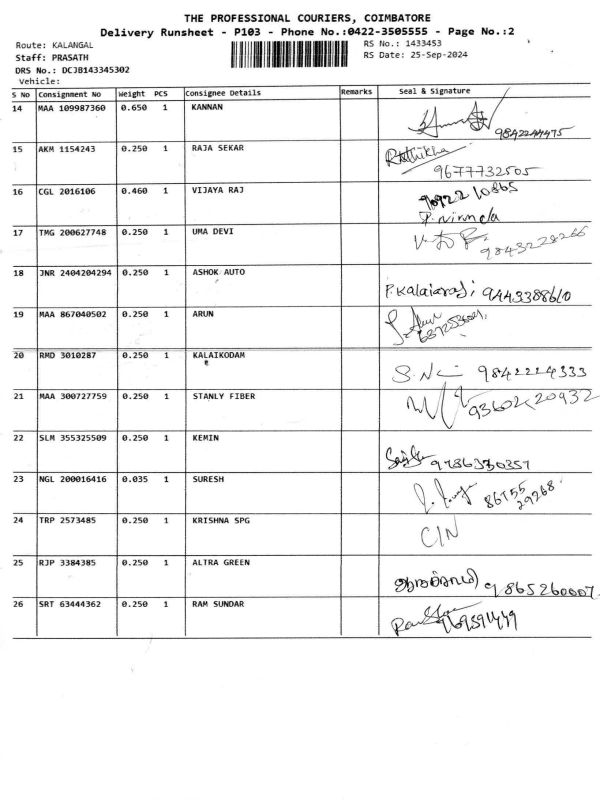 THE PROFESSIONAL COURIERS, COIMBATORE
Delivery Runsheet - P103 - Phone No.:0422-3505555 - Page No.:2
Route: KALANGAL
RS No.: 1433453
Staff: PRASATH
RS Date: 25-Sep-2024
DRS No.: DCJB143345302
Vehicle:
S No Consignment No Weight PCS Consignee Details Remarks Seal & Signature
14 MAA 109987360 0.650 1 KANNAN 9842244475
15 AKM 1154243 0.250 1 RAJA SEKAR Rathikha
9677732505
16 CGL 2016106 0.460 1 VIJAYA RAJ
P. nirmala
17 TMG 200627748 0.250 1 UMA DEVI 9843228266
18 JNR 2404204294 0.250 1 ASHOK AUTO P. Kalaiarasi 9443388610
19 MAA 867040502 0.250 1 ARUN
20 RMD 3010287 0.250 1 KALAIKODAM 9842224333
21 MAA 300727759 0.250 1 STANLY FIBER
22 SLM 355325509 0.250 1 KEMIN 9786330357
23 NGL 200016416 0.035 1 SURESH 86755
29268
24 TRP 2573485 0.250 1 KRISHNA SPG C/N
25 RJP 3384385 0.250 1 ALTRA GREEN 9865260007
26 SRT 63444362 0.250 1 RAM SUNDAR